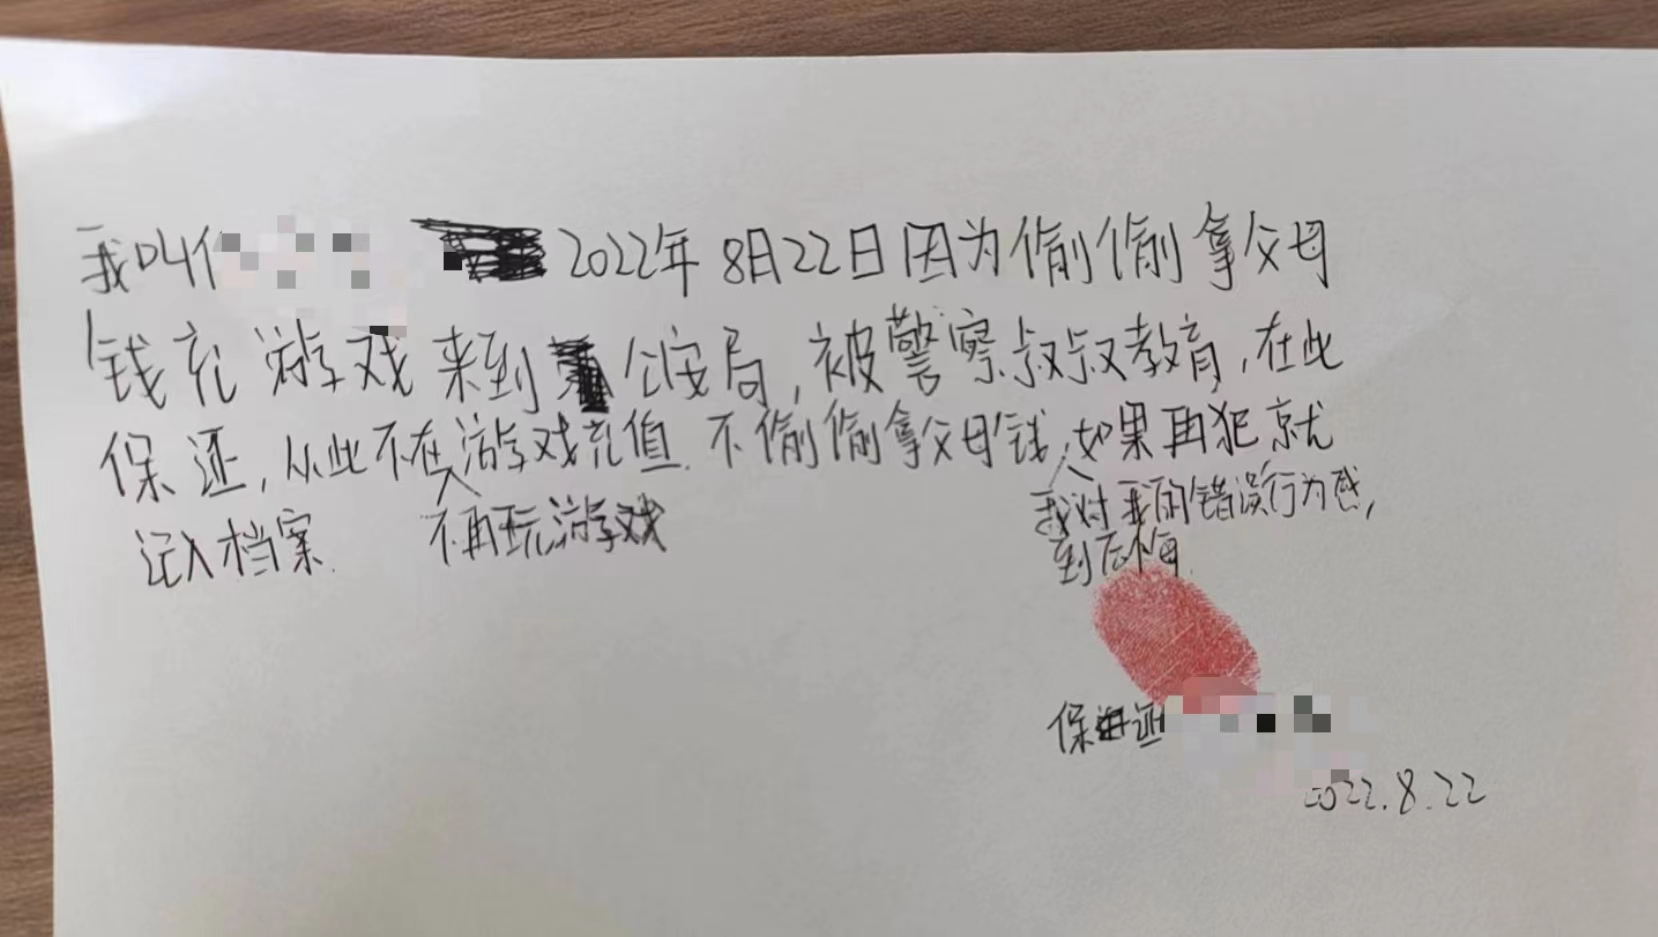 我叫
2022年8月22日因为偷偷拿父母
钱充游戏来到公安局,被警察叔叔教育,在此
保证,从此不在游戏充值.不偷偷拿父母钱,如果再犯就
记入档案.
不再玩游戏
我对我的错误行为感,
到后悔.
保证
2022.8.22